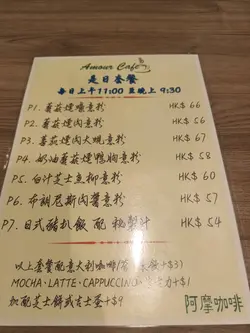 Amour Cafe
是日套餐
每日上午11:00 至晚上 9:30
P1. 蕃菇煙腸意粉 HK$ 66
P2. 蕃菇煙肉意粉 HK$ 56
P3. 蕃菇煙肉大蜆意粉 HK$ 67
P4. 奶油蕃菇煙鴨胸意粉 HK$ 58
P5. 白汁芝士魚柳意粉 HK$ 60
P6. 布朗尼斯肉醬意粉 HK$ 57
P7. 日式豬扒飯 配 秘製汁 HK$ 54
以上套餐配意大利咖啡/茶 +$3)
MOCHA, LATTE, CAPPUCCINO, +$1)
加配芝士餅或吉士蛋+$9
阿摩咖啡